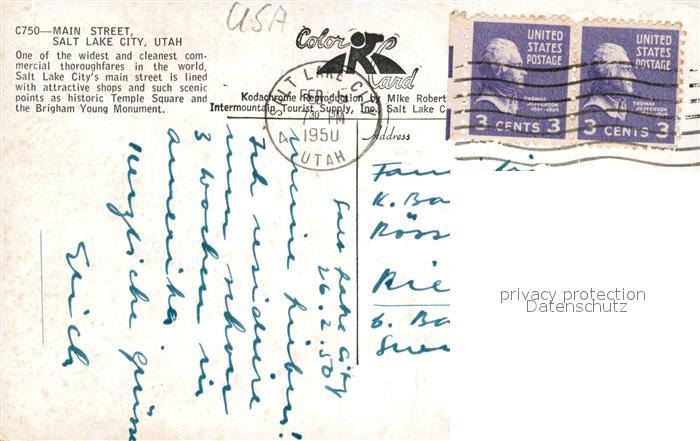 USA
C750—MAIN STREET,
SALT LAKE CITY, UTAH
One of the widest and cleanest com-
mercial thoroughfares in the world,
Salt Lake City's main street is lined
with attractive shops and such scenic
points as historic Temple Square and
the Brigham Young Monument.
Color
Kard
Kodachrome Reproduction by Mike Robert
Intermountain Tourist Supply, Inc., Salt Lake C
SALT LAKE CITY
FEB
7 30 PM
1950
UTAH
UNITED
STATES
POSTAGE
THOMAS
JEFFERSON
1801-1809
3 CENTS 3
UNITED
STATES
POSTAGE
THOMAS
JEFFERSON
1801-1809
3 CENTS 3
Address
Salt Lake City
26.2.50
meine Lieben!
Ich residiere
nun schon
3 Wochen in
Amerika
Herzliche Grüsse
Erich
Fam
K. Ba
Röss
Rie
b. Ba
privacy protection
Datenschutz